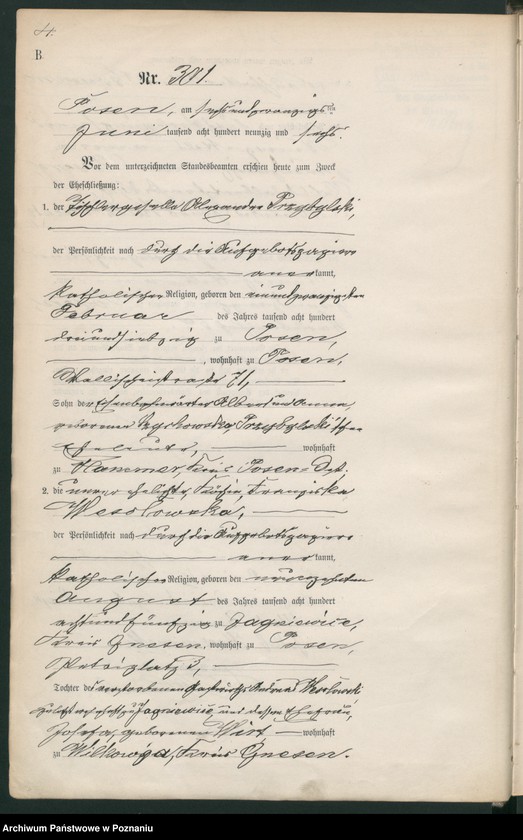 B.
Nr. 301.
Posen, am sechsundzwanzigsten
Juni tausend acht hundert neunzig und sechs.
Vor dem unterzeichneten Standesbeamten erschien heute zum Zweck
der Eheschließung:
1. der Tischlergeselle Alexander Przybylski,
der Persönlichkeit nach durch die Aufgebotspapiere
anerkannt,
katholischer Religion, geboren den einundzwanzigsten
Februar des Jahres tausend acht hundert
dreiundsiebzig zu Posen,
, wohnhaft zu Posen,
Wallischeistraße 71,
Sohn der Eisenbahnwärter Albert und Anna,
geborenen Przybylski'schen
Eheleute, wohnhaft
zu Hammer, Kreis Posen-Ost.
2. die unverehelichte Köchin Franziska
Wesołowska,
der Persönlichkeit nach durch die Aufgebotspapiere
anerkannt,
katholischer Religion, geboren den
August des Jahres tausend acht hundert
achtundfünfzig zu Jagniewice,
Kreis Gnesen, wohnhaft zu Posen,
Petriplatz 3,
Tochter des verstorbenen Wesołowski
zuletzt wohnhaft zu Jagniewice und dessen Ehefrau,
Josefa, geborenen Wirt wohnhaft
zu Wilkowyja, Kreis Gnesen.
Archiwum Państwowe w Poznaniu